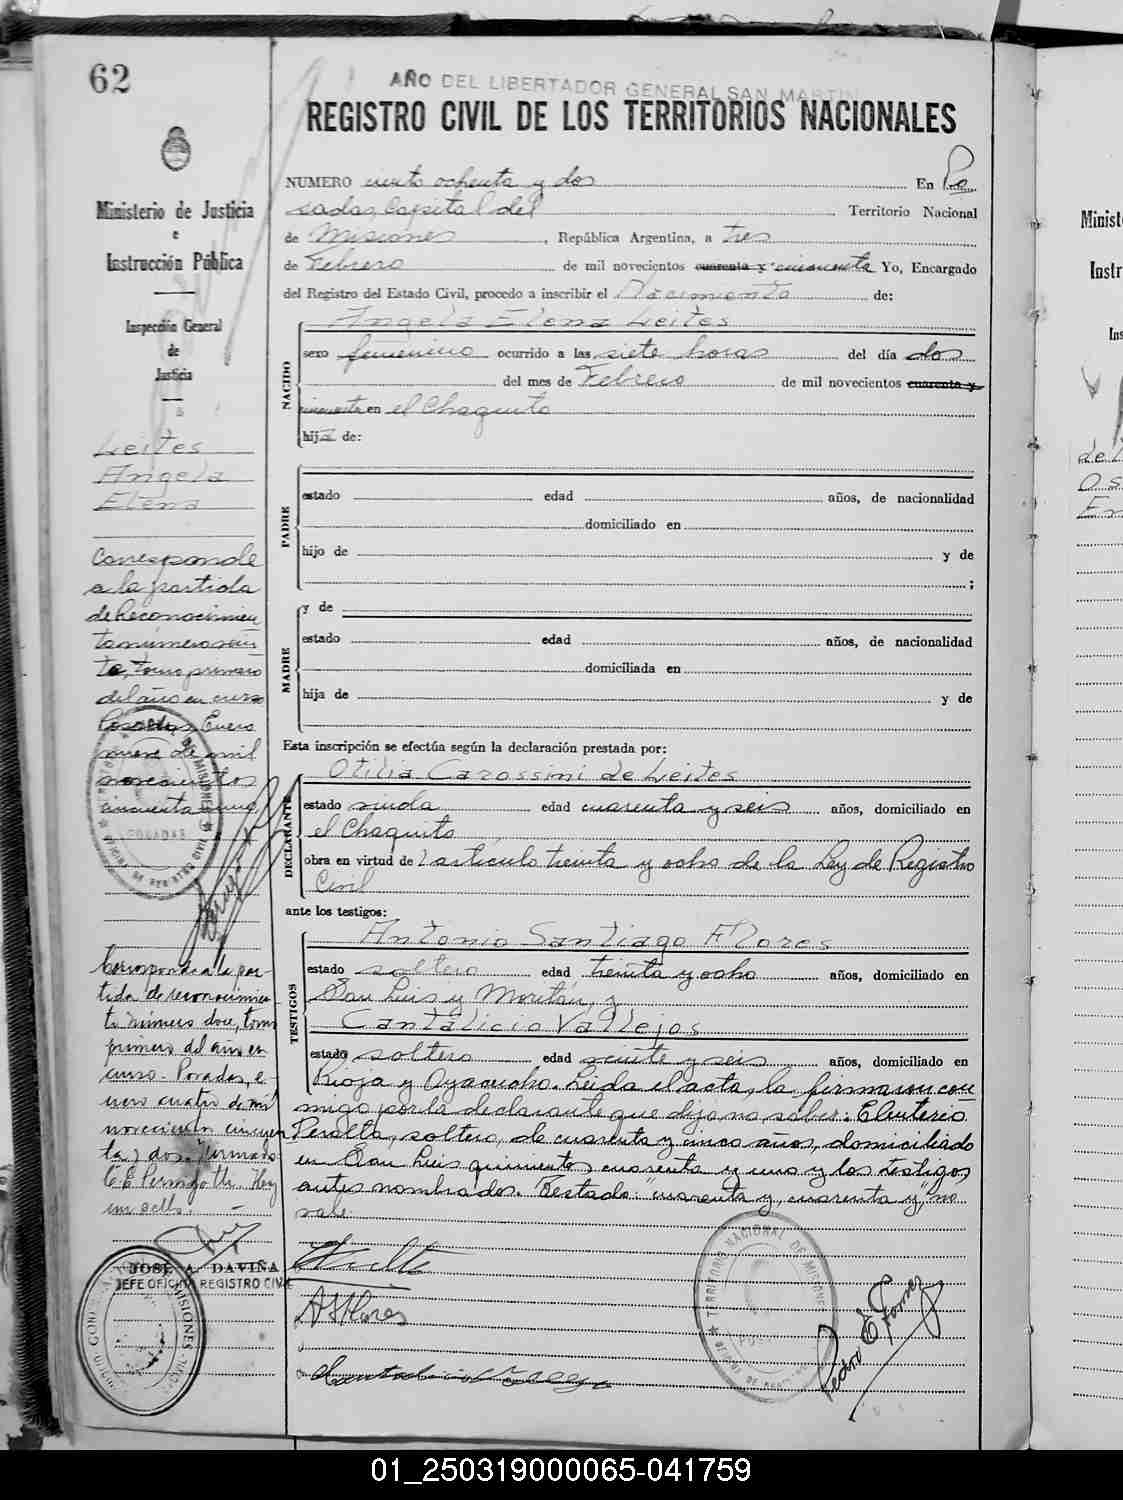 62
AÑO DEL LIBERTADOR GENERAL SAN MARTIN
REGISTRO CIVIL DE LOS TERRITORIOS NACIONALES
Ministerio de Justicia
e
Instrucción Pública
Inspección General
de
Justicia
Leites
Angela
Elena
Corresponde
a la partida
de Reconocimien
to número
tomo primero
del año en curso
Posadas, Enero
nueve de mil
novecientos
cincuenta y uno
POSADAS
Corresponde a la par-
tida de reconocimien-
to número doce, tomo
primero del año en
curso. Posadas, e-
nero cuatro de mil
novecientos cincuen
ta y dos. Firmado
C. E.
JOSE A. DAVIÑA
JEFE OFICINA REGISTRO CIVIL
NUMERO ciento ochenta y dos En Po
sadas, Capital del Territorio Nacional
de Misiones, República Argentina, a tres
de Febrero de mil novecientos cuarenta y cincuenta Yo, Encargado
del Registro del Estado Civil, procedo a inscribir el Nacimiento de:
NACIDO
Angela Elena Leites
sexo femenino ocurrido a las siete horas del día dos
del mes de Febrero de mil novecientos cuarenta y
cincuenta en el Chaquito
hija de:
PADRE
estado edad años, de nacionalidad
domiciliado en
hijo de y de
;
MADRE
y de
estado edad años, de nacionalidad
domiciliada en
hija de y de
Esta inscripción se efectúa según la declaración prestada por:
DECLARANTE
Otilia Carossini de Leites
estado viuda edad cuarenta y seis años, domiciliado en
el Chaquito
obra en virtud del artículo treinta y ocho de la Ley de Registro
Civil
ante los testigos:
TESTIGOS
Antonio Santiago Flores
estado soltero edad treinta y ocho años, domiciliado en
San Luis y Moritán, y
Cantalicio Vallejos
estado soltero edad veinte y seis años, domiciliado en
Rioja y Ayacucho. Leída el acta, la firmaron con
migo por la declarante que dijo no saber: Eleuterio
Peralta, soltero, de cuarenta y cinco años, domiciliado
en San Luis quinientos cuarenta y uno y los testigos
antes nombrados. Testado: "cuarenta y, cuarenta y," no
vale.
TERRITORIO NACIONAL DE MISIONES
A S Flores
Pedro E Gomez
01_250319000065-041759